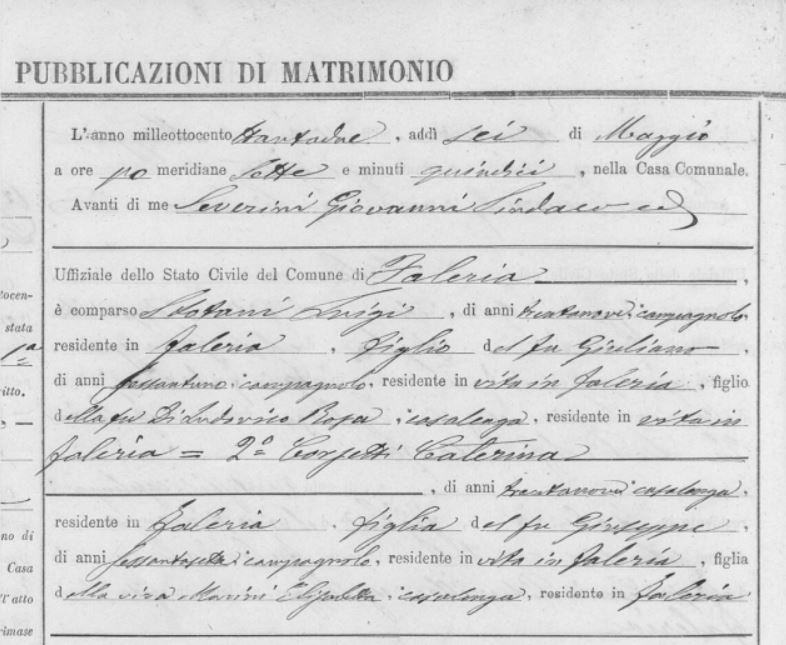 PUBBLICAZIONI DI MATRIMONIO
L'anno milleottocento ottantadue, addì sei di Maggio
a ore po meridiane sette e minuti quindici, nella Casa Comunale.
Avanti di me Severini Giovanni Sindaco ed
Uffiziale dello Stato Civile del Comune di Faleria,
è comparso Luigi, di anni trentanove, campagnolo,
residente in Faleria, figlio del fu Giuliano,
di anni sessantuno, campagnolo, residente in vita in Faleria, figlio
della fu Di Ludovico Rosa, casalenga, residente in vita in
Faleria = 2º Corsetti Caterina
, di anni trentanove, casalenga,
residente in Faleria, figlia del fu Giuseppe,
di anni campagnolo, residente in vita in Faleria, figlia
della viva Marini Elisabetta, casalenga, residente in Faleria
tocen-
stata
1ª
itto.
no di
Casa
l'atto
rimase